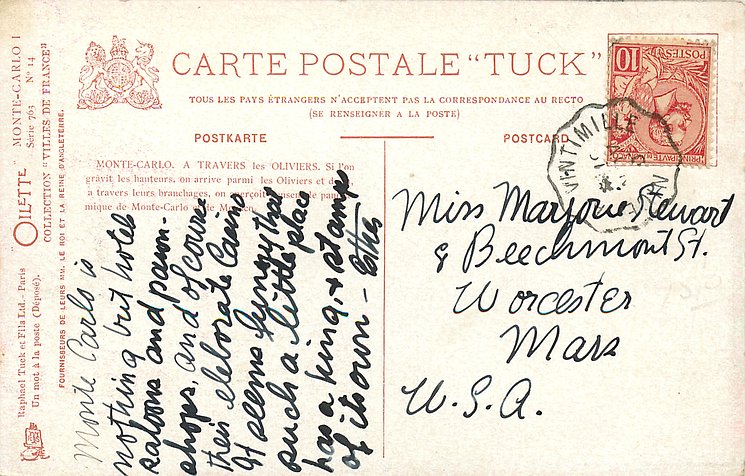 CARTE POSTALE "TUCK"
TOUS LES PAYS ÉTRANGERS N'ACCEPTENT PAS LA CORRESPONDANCE AU RECTO
(SE RENSEIGNER A LA POSTE)
POSTKARTE
POSTCARD
MONTE-CARLO. A TRAVERS les OLIVIERS. Si l'on
gravit les hauteurs, on arrive parmi les Oliviers et de là,
a travers leurs branchages, on aperçoit
mique de Monte-Carlo
"OILETTE" MONTE-CARLO I
Série 703 Nº 14
COLLECTION "VILLES DE FRANCE"
FOURNISSEURS DE LEURS MM. LE ROI ET LA REINE D'ANGLETERRE.
Raphael Tuck et Fils Ltd.- Paris
Un mot à la poste (Déposé).
Monte Carlo is
nothing but hotel
saloons and pawn-
shops, and of course
their eleborate Casino
It seems funny that
such a little place
has a king, & stamps
of its own –
Miss Marjorie Stewart
8 Beechmont St.
Worcester
Mass
U.S.A.
10
POSTES
VINTIMILLE